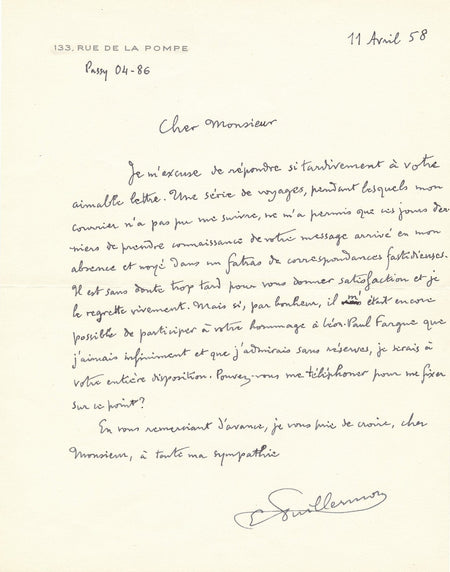 133, RUE DE LA POMPE
11 Avril 58
Passy 04-86
Cher Monsieur
Je m'excuse de répondre si tardivement à votre
aimable lettre. Une série de voyages, pendant lesquels mon
courrier n'a pas pu me suivre, ne m'a permis que ces jours der-
niers de prendre connaissance de votre message arrivé en mon
absence et noyé dans un fatras de correspondances fastidieuses.
Il est sans doute trop tard pour vous donner satisfaction et je
le regrette vivement. Mais si, par bonheur, il m'était encore
possible de participer à votre hommage à Léon-Paul Fargue que
j'aimais infiniment et que j'admirais sans réserves, je serais à
votre entière disposition. Pouvez-vous me téléphoner pour me fixer
sur ce point?
En vous remerciant d'avance, je vous prie de croire, cher
Monsieur, à toute ma sympathie